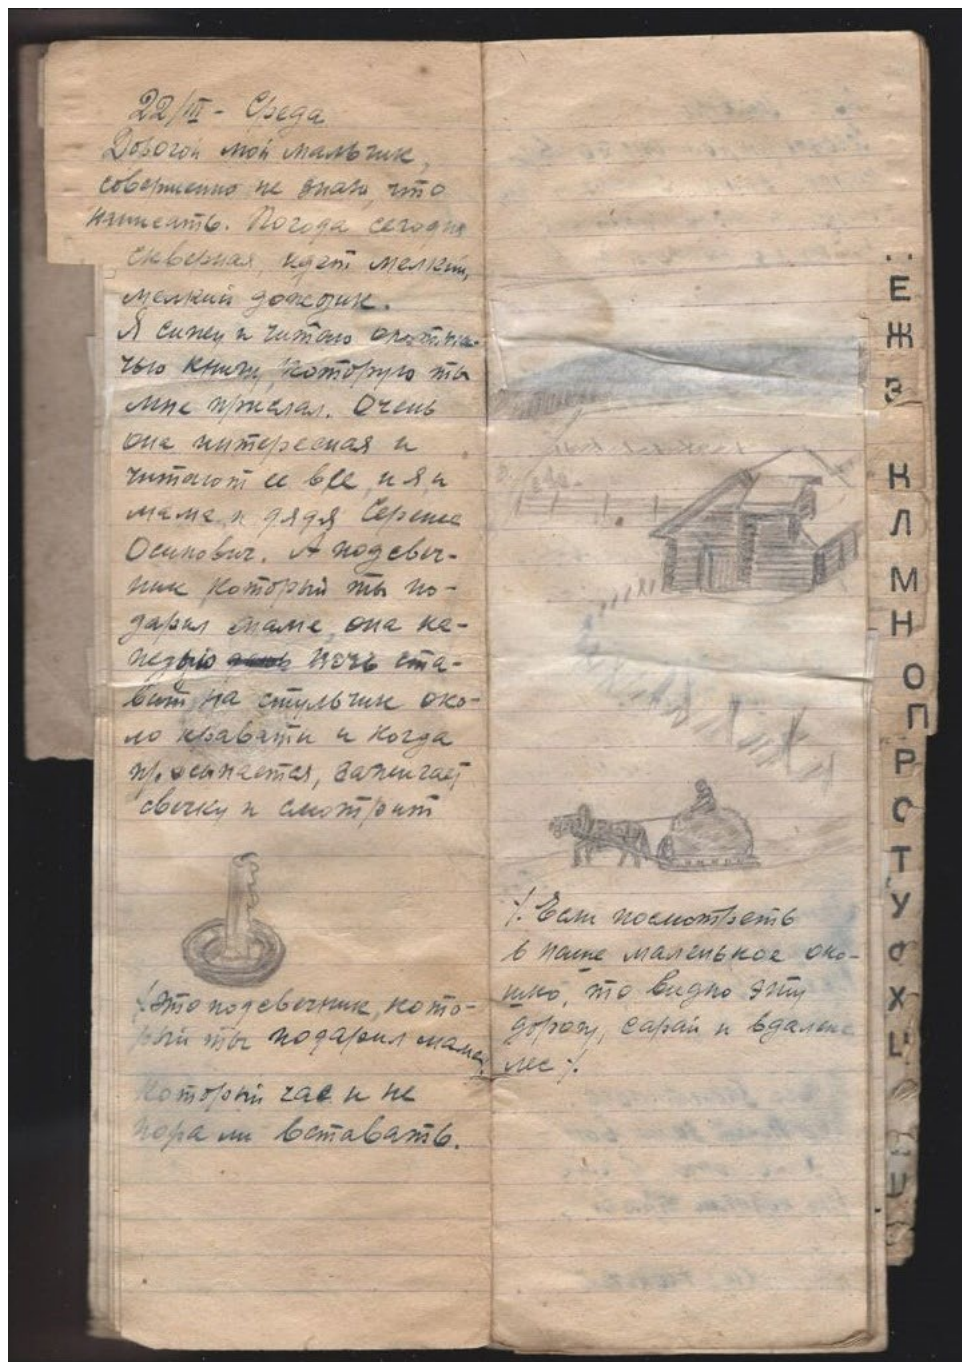 22/III - Среда
Дорогой мой мальчик,
совершенно не знаю, что
написать. Погода сегодня
скверная, идет мелкий,
мелкий дождик.
Я сижу и читаю охотни-
чью книгу, которую ты
мне прислал. Очень
она интересная и
читают ее все, и я, и
мама, и дядя
Осипович. А подсвеч-
ник который ты по-
дарил маме, она ка-
ночь ста-
вит на стульчик око-
ло кравати и когда
просыпается, зажигает
свечку и смотрит
/Это подсвечник, кото-
рый ты подарил маме/
который час и не
пора ли вставать.
/. Если посмотреть
в наше маленькое око-
шко, то видно эту
дорогу, сарай и вдалеке
лес /.
Ё
Ж
З
К
Л
М
Н
О
П
Р
С
Т
У
Ф
Х
Ц